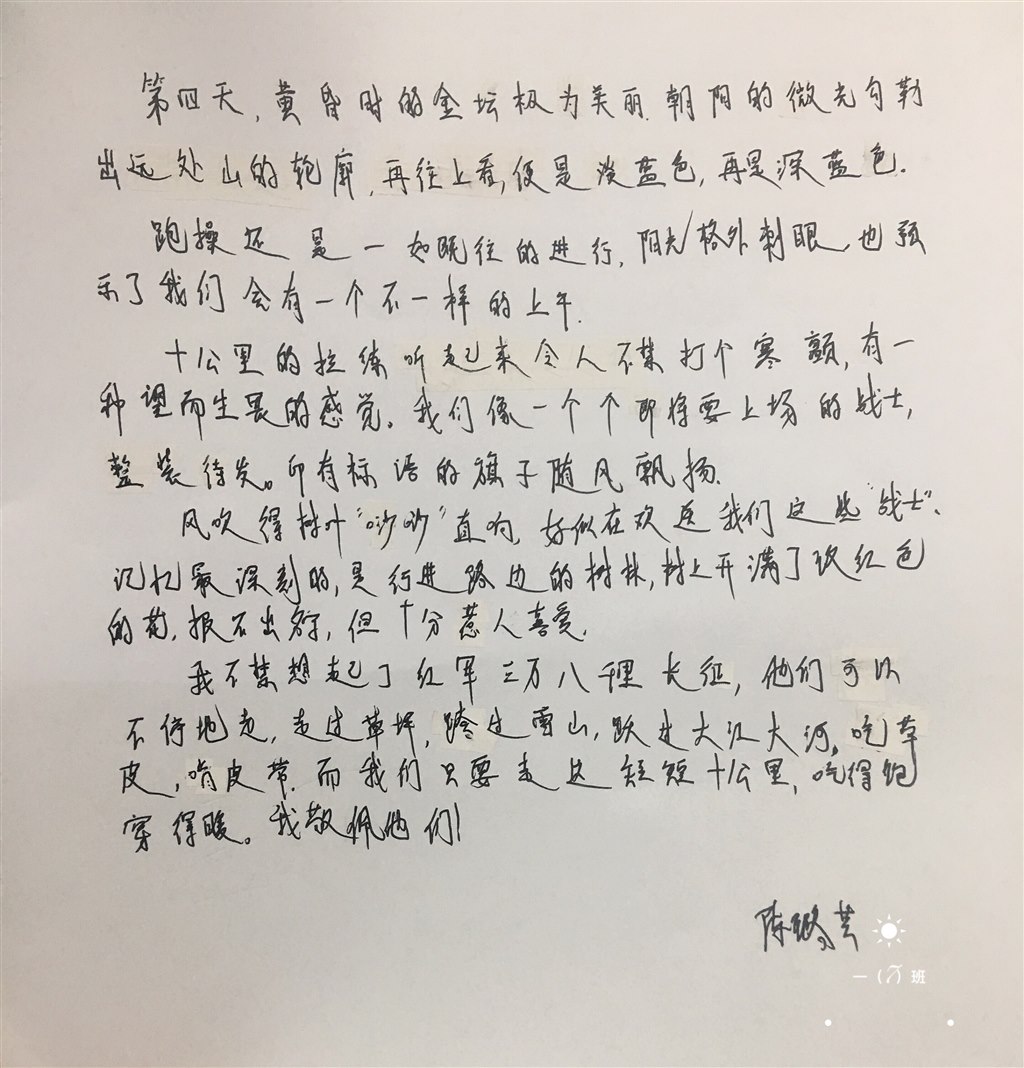 第四天,黄昏时的金坛极为美丽.朝阳的微光勾勒
出远处山的轮廓,再往上看,便是淡蓝色,再是深蓝色.
跑操还是一如既往的进行,阳光格外刺眼,也预
示了我们会有一个不一样的上午.
十公里的拉练听起来令人不禁打个寒颤,有一
种望而生畏的感觉。我们像一个个即将要上场的战士,
整装待发。印有标语的旗子随风飘扬.
风吹得树叶“吵吵”直响,好似在欢迎我们这些“战士”、
记忆最深刻的,是行进路边的树林,树上开满了玫红色
的花,报不出名,但十分惹人喜爱.
我不禁想起了红军三万八千里长征,他们可以
不停地走,走过草坪,跨过雪山,跃过大江大河,吃草
皮,啃皮带.而我们只要走这短短十公里,吃得饱
穿得暖。我敬佩他们!
陈 芸
一(7)班